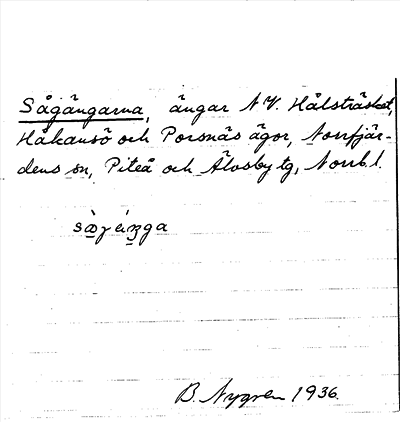 Sågängarna, ängar N.V. Hålsträsket,
Håkansö och Porsnäs ägor, Norrfjär-
dens sn, Piteå och Älvsby tg, Norrb.l.
B. Nygren 1936.